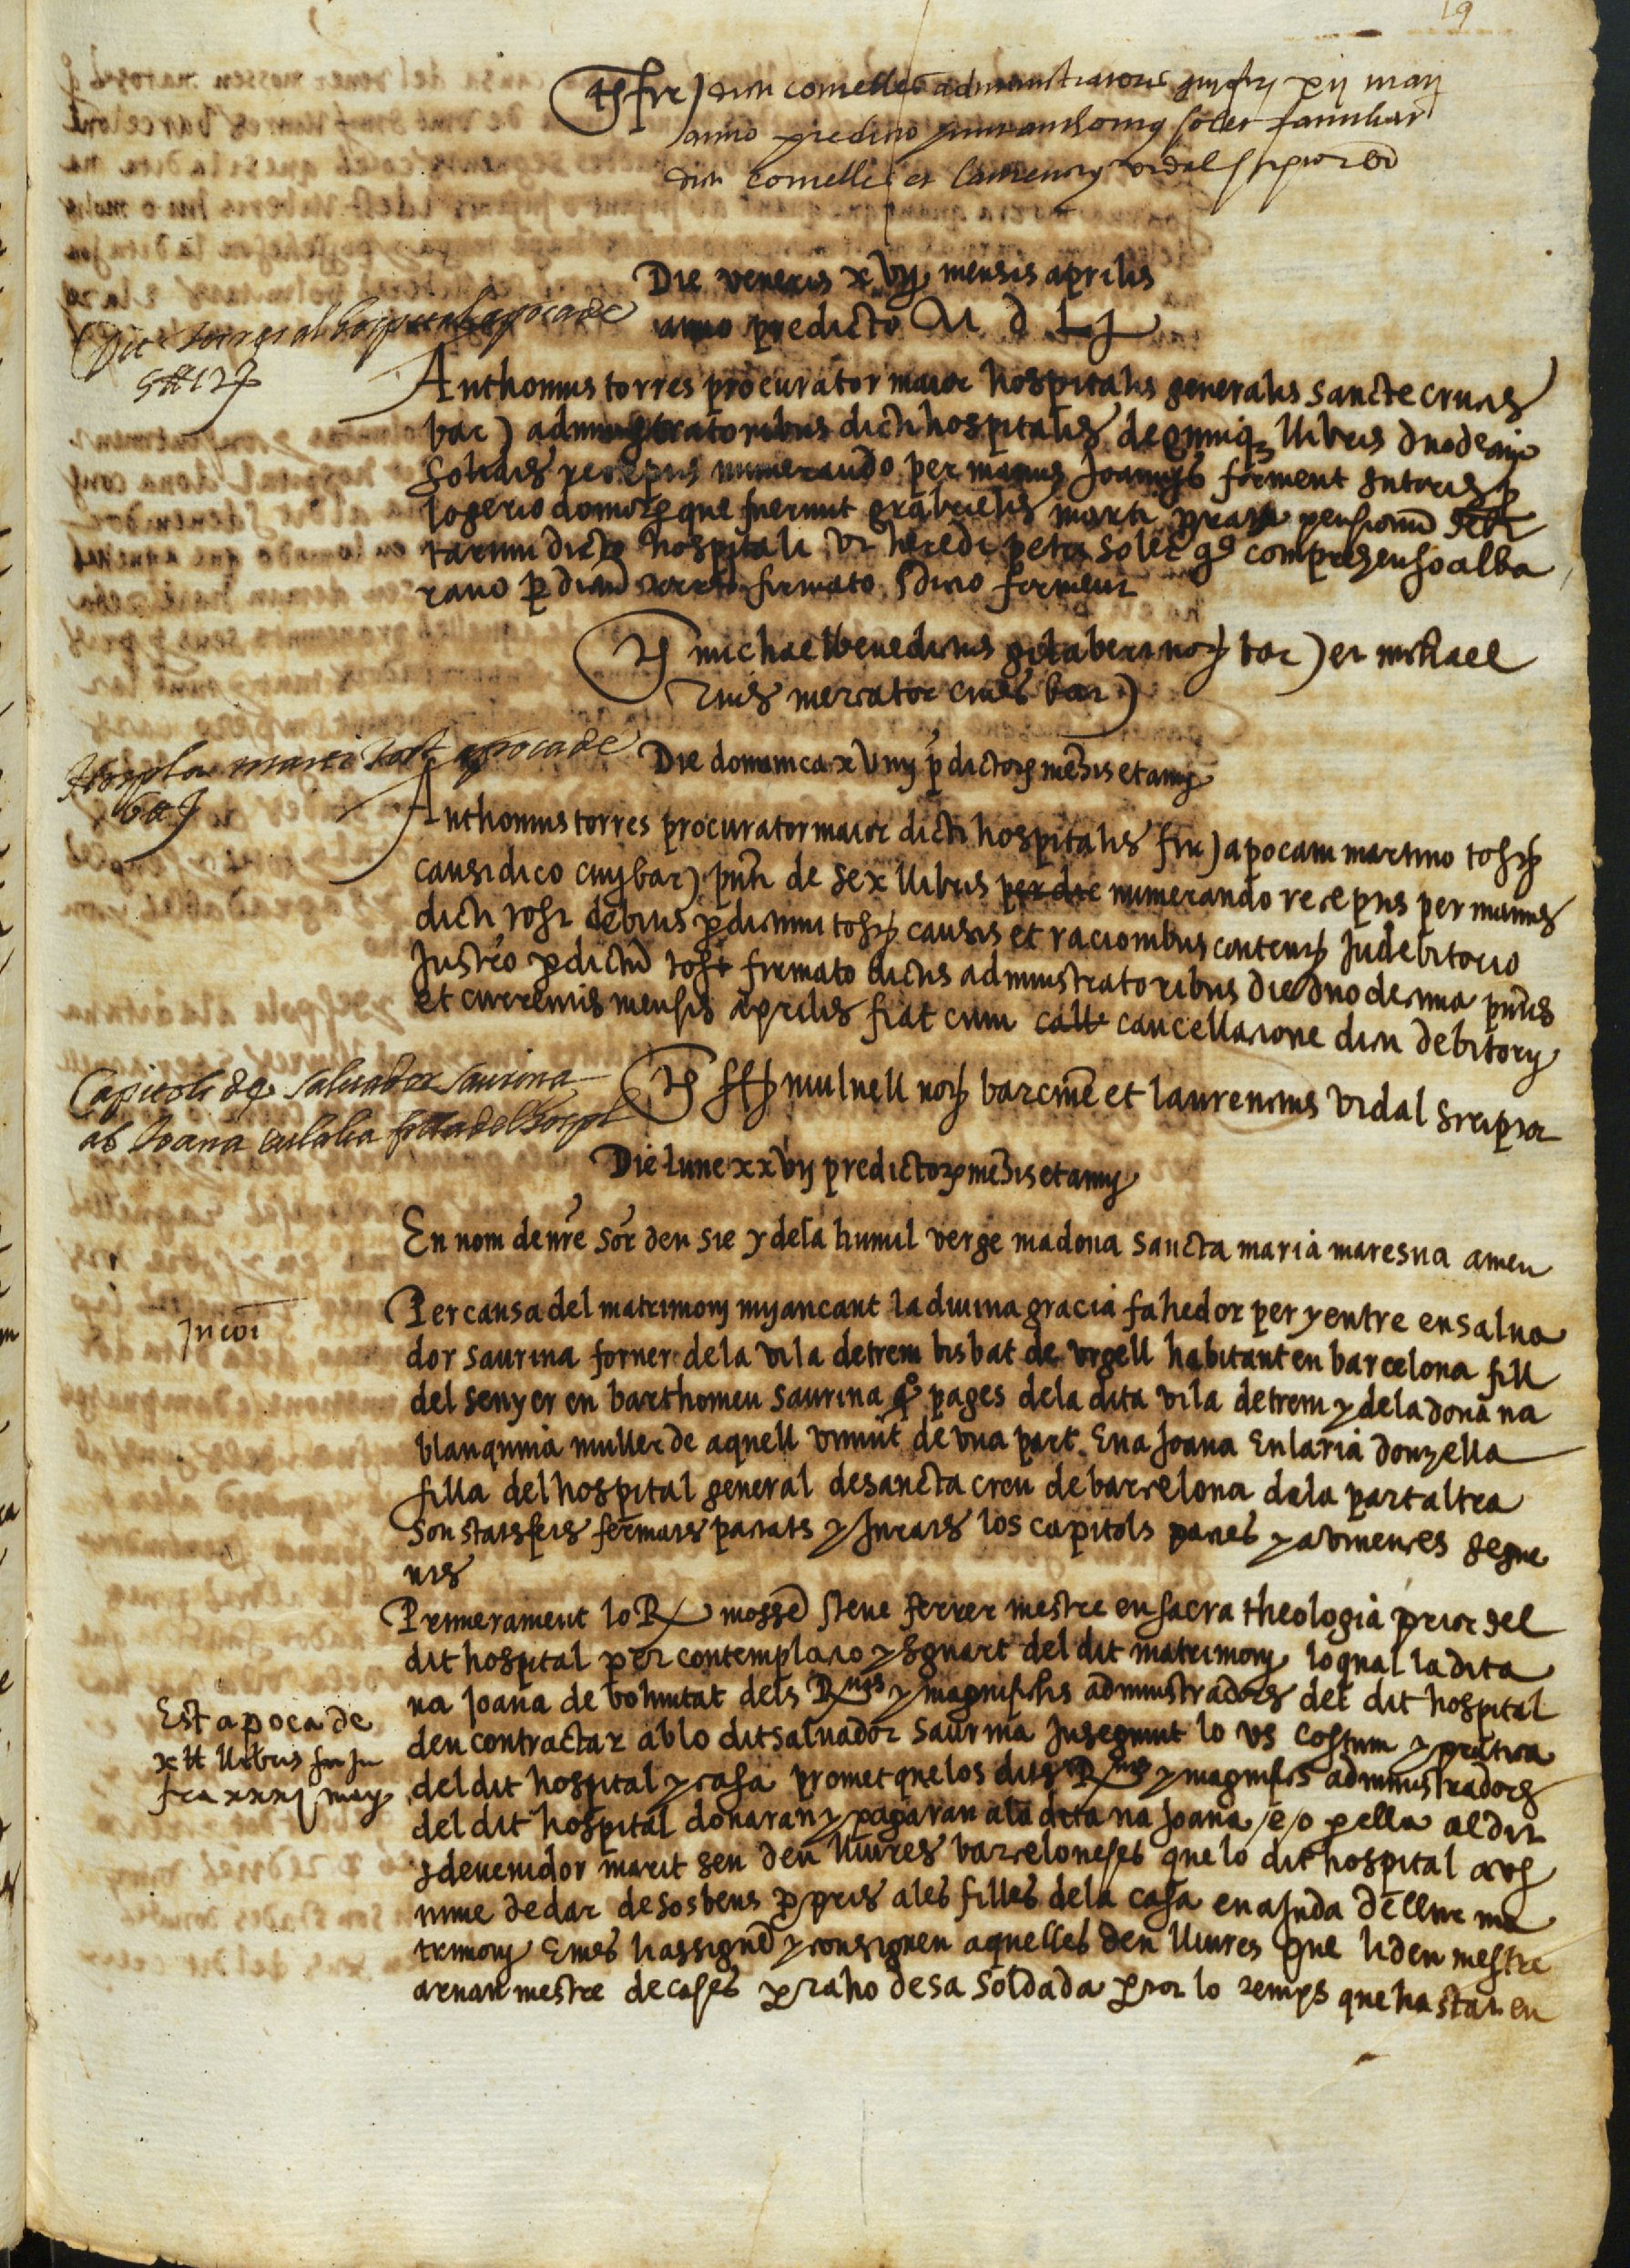 19
dicti comelles administratoris qui fir) xij maij
anno predicto anthonius soler familiar
dicti comelles et laurencius vidal scriptor
Die veneris xvij mensis aprilis
anno predicto M D L J
Dit torres al hospital apoca de
5 ₶ 12 ß
Anthonius torres procurator maior hospitalis generalis sancte crucis
bar) administratoribus dicti hospitalis de quinque llibris duodecim
solidis receptis numerando per manus Joannis forment sutoris p
logerio domorum que fuerunt grabrielis marti pensionum
dicto hospitali ut heredi petri soler qº comprehenso alba
rano p dictum torres firmato dicto forment
Ts michael benedictus gilabert not bar) et michael
ruis mercator cives bar)
Hospital marti tost apoca de
6 ₶
Die dominica xviiij pdictorum mensis et anni
Anthonius torres procurator maior dicti hospitalis fir) apocam martino tost
causidico civi bar) pnti de sex llibris per dic numerando receptis per manus
dicti tost debitis p dictum tost causis et racionibus contentis Jn debitorio
Justeo p dictum tost firmato dictis administratoribus die duodecima pntis
et currentis mensis aprilis fiat cum call cancellacione dicti debitorij
Capitols de salvador saurina
ab Joana eulalia filla del hospl
Ts mulnell not barcine et laurencius vidal scriptor
Die lune xxvij predictorum mensis et anni
En nom de nre sor deu sie y dela humil verge madona sancta maria mare sua amen
Per causa del matrimonj myancant la divina gracia fahedor per y entre en salva
dor saurina forner dela vila de trem bisbat de urgell habitant en barcelona fill
del senyer en barthomeu saurina qº pages dela dita vila de trem y dela dona na
blanquina muller de aquell vivint de vna part. E na Joana Eularia donzella
filla del hospital general de sancta creu de barcelona dela part altra
son stats fets fermats pactats y Jurats los capitols pactes y avinences segue
nts
Primerament lo R mossen steve ferrer mestre en sacra theologia prior del
dit hospital per contemplacio y sguart del dit matrimonj lo qual la dita
na Joana de voluntat dels Rnts y magnifichs administradors del dit hospital
deu contractar ab lo dit salvador saurina Juseguint lo vs costum y pratica
del dit hospital y casa promet que los dits Rnts y magnifichs administradors
del dit hospital donaran y pagaran ala dita na Joana e/o p ella al dit
sdevenidor marit seu deu lliures barceloneses que lo dit hospital acos
tume de dar de sos bens ppris ales filles dela casa en ajuda de llur ma
trimonj E mes li assignen y consignen aquelles deu lliures que li deu mestre
arnau mestre de cases p raho de sa soldada p tot lo temps que ha stat en
Est apoca de
x ₶ llibris
fra xxxj maij